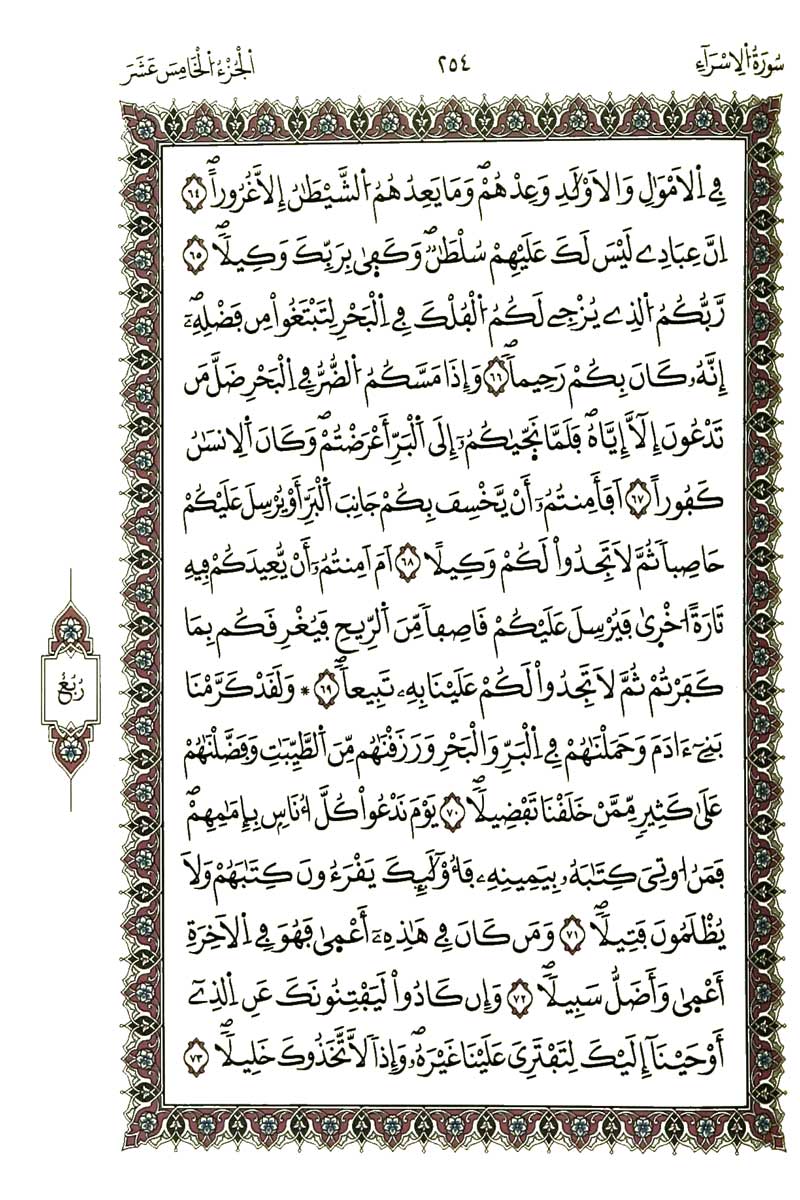 سُورَةُ الِاسْرَآءِ
٢٥٤
الْجُزْءُ الْخَامِسَ عَشَرَ
فِے اِلَامْوَٰلِ وَالَاوْلَٰدِ وَعِدْهُمْۖ وَمَا يَعِدُهُمُ اُلشَّيْطَٰنُ إِلَّا غُرُوراًۖ ٦٤
اِنَّ عِبَادِے لَيْسَ لَكَ عَلَيْهِمْ سُلْطَٰنٌۖ وَكَفۭيٰ بِرَبِّكَ وَكِيلاًۖ ٦٥
رَّبُّكُمُ اُلذِے يُزْجِے لَكُمُ اُلْفُلْكَ فِے اِلْبَحْرِ لِتَبْتَغُواْ مِن فَضْلِهِۦٓۖ
إِنَّهُۥ كَانَ بِكُمْ رَحِيماًۖ ٦٦ وَإِذَا مَسَّكُمُ اُلضُّرُّ فِے اِلْبَحْرِ ضَلَّ مَن
تَدْعُونَ إِلَّآ إِيَّاهُۖ فَلَمَّا نَجّۭيٰكُمُۥٓ إِلَى اَلْبَرِّ أَعْرَضْتُمْۖ وَكَانَ اَلِانسَٰنُ
كَفُوراًۖ ٦٧ اَفَأَمِنتُمُۥٓ أَنْ يَّخْسِفَ بِكُمْ جَانِبَ اَلْبَرِّ أَوْ يُرْسِلَ عَلَيْكُمْ
حَاصِباً ثُمَّ لَا تَجِدُواْ لَكُمْ وَكِيلاً ٦٨ اَمَ اَمِنتُمُۥٓ أَنْ يُّعِيدَكُمْ فِيهِ
تَارَةً اُخْر۪يٰ فَيُرْسِلَ عَلَيْكُمْ قَاصِفاً مِّنَ اَلرِّيحِ فَيُغْرِقَكُم بِمَا
كَفَرْتُمْ ثُمَّ لَا تَجِدُواْ لَكُمْ عَلَيْنَا بِهِۦ تَبِيعاًۖ ٦٩ * وَلَقَدْ كَرَّمْنَا
بَنِےٓ ءَادَمَ وَحَمَلْنَٰهُمْ فِے اِلْبَرِّ وَالْبَحْرِ وَرَزَقْنَٰهُم مِّنَ اَلطَّيِّبَٰتِ وَفَضَّلْنَٰهُمْ
عَلَىٰ كَثِيرٖ مِّمَّنْ خَلَقْنَا تَفْضِيلاًۖ ٧٠ يَوْمَ نَدْعُواْ كُلَّ أُنَاسِۢ بِإِمَٰمِهِمْۖ
فَمَنُ ا۟وتِيَ كِتَٰبَهُۥ بِيَمِينِهِۦ فَأُوْلَٰٓئِكَ يَقْرَءُونَ كِتَٰبَهُمْ وَلَا
يُظْلَمُونَ فَتِيلاًۖ ٧١ وَمَن كَانَ فِے هَٰذِهِۦٓ أَعْمۭيٰ فَهُوَ فِے اِلَاخِرَةِ
أَعْمۭيٰ وَأَضَلُّ سَبِيلاًۖ ٧٢ وَإِن كَادُواْ لَيَفْتِنُونَكَ عَنِ اِلذِےٓ
أَوْحَيْنَآ إِلَيْكَ لِتَفْتَرِيَ عَلَيْنَا غَيْرَهُۥۖ وَإِذاً لَّاتَّخَذُوكَ خَلِيلاًۖ ٧٣
رُبُعُ